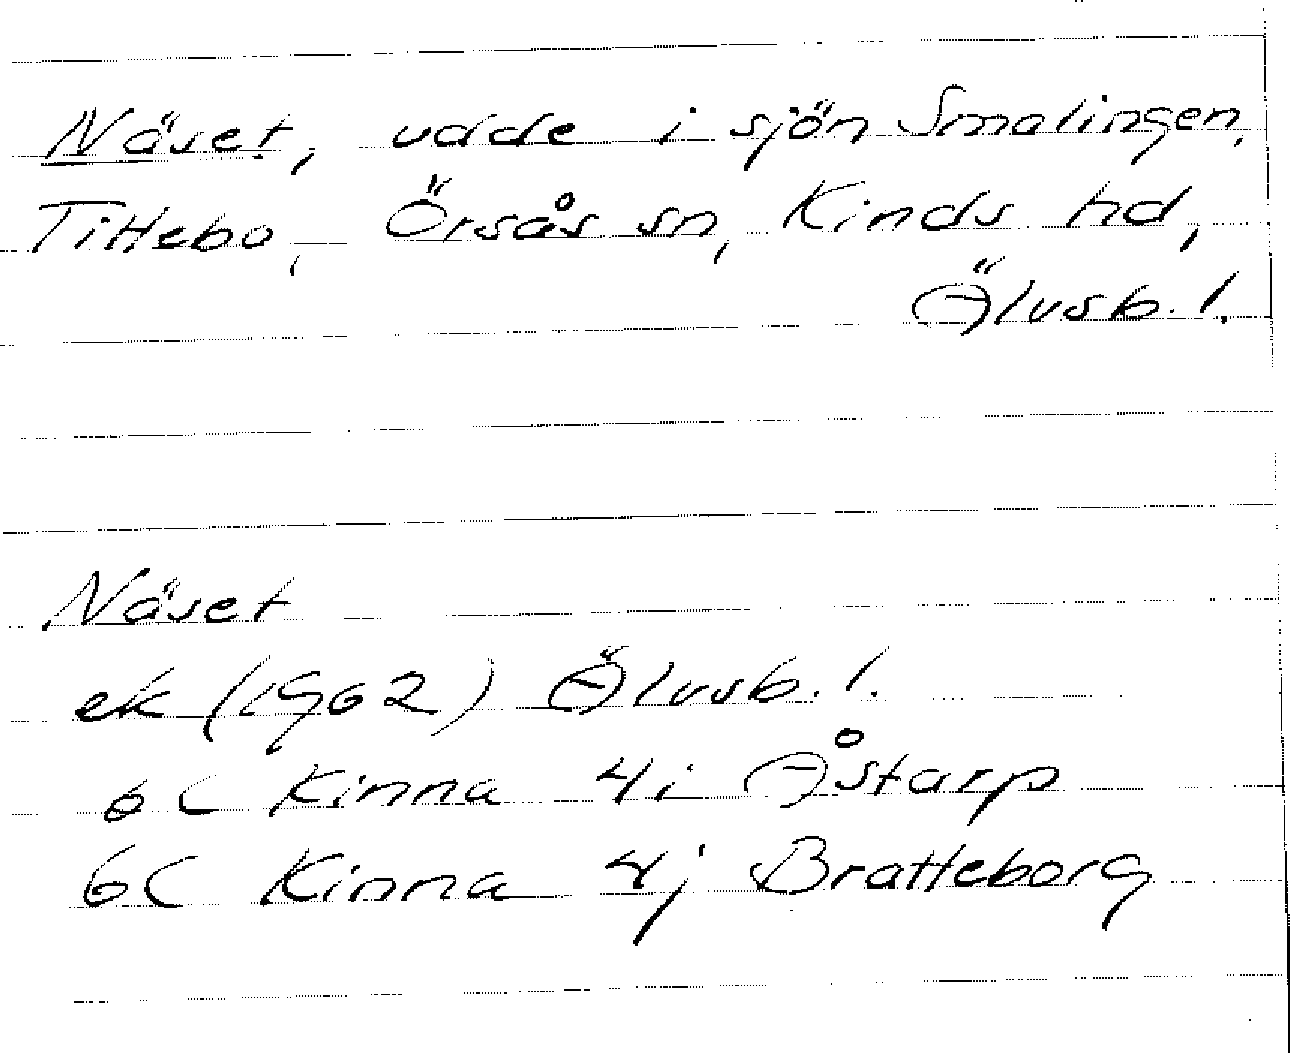 Näset, udde i sjön Smalingen,
Tittebo, Örsås sn, Kinds hd,
Älvsb. l.
Näset
ek (1962) Älvsb. l.
6C Kinna 4i Åstarp
6C Kinna 4j Bratteborg